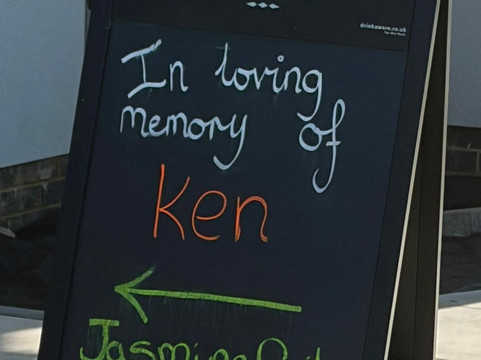 drinkaware.co.uk
In loving
memory of
Ken
Jasmine